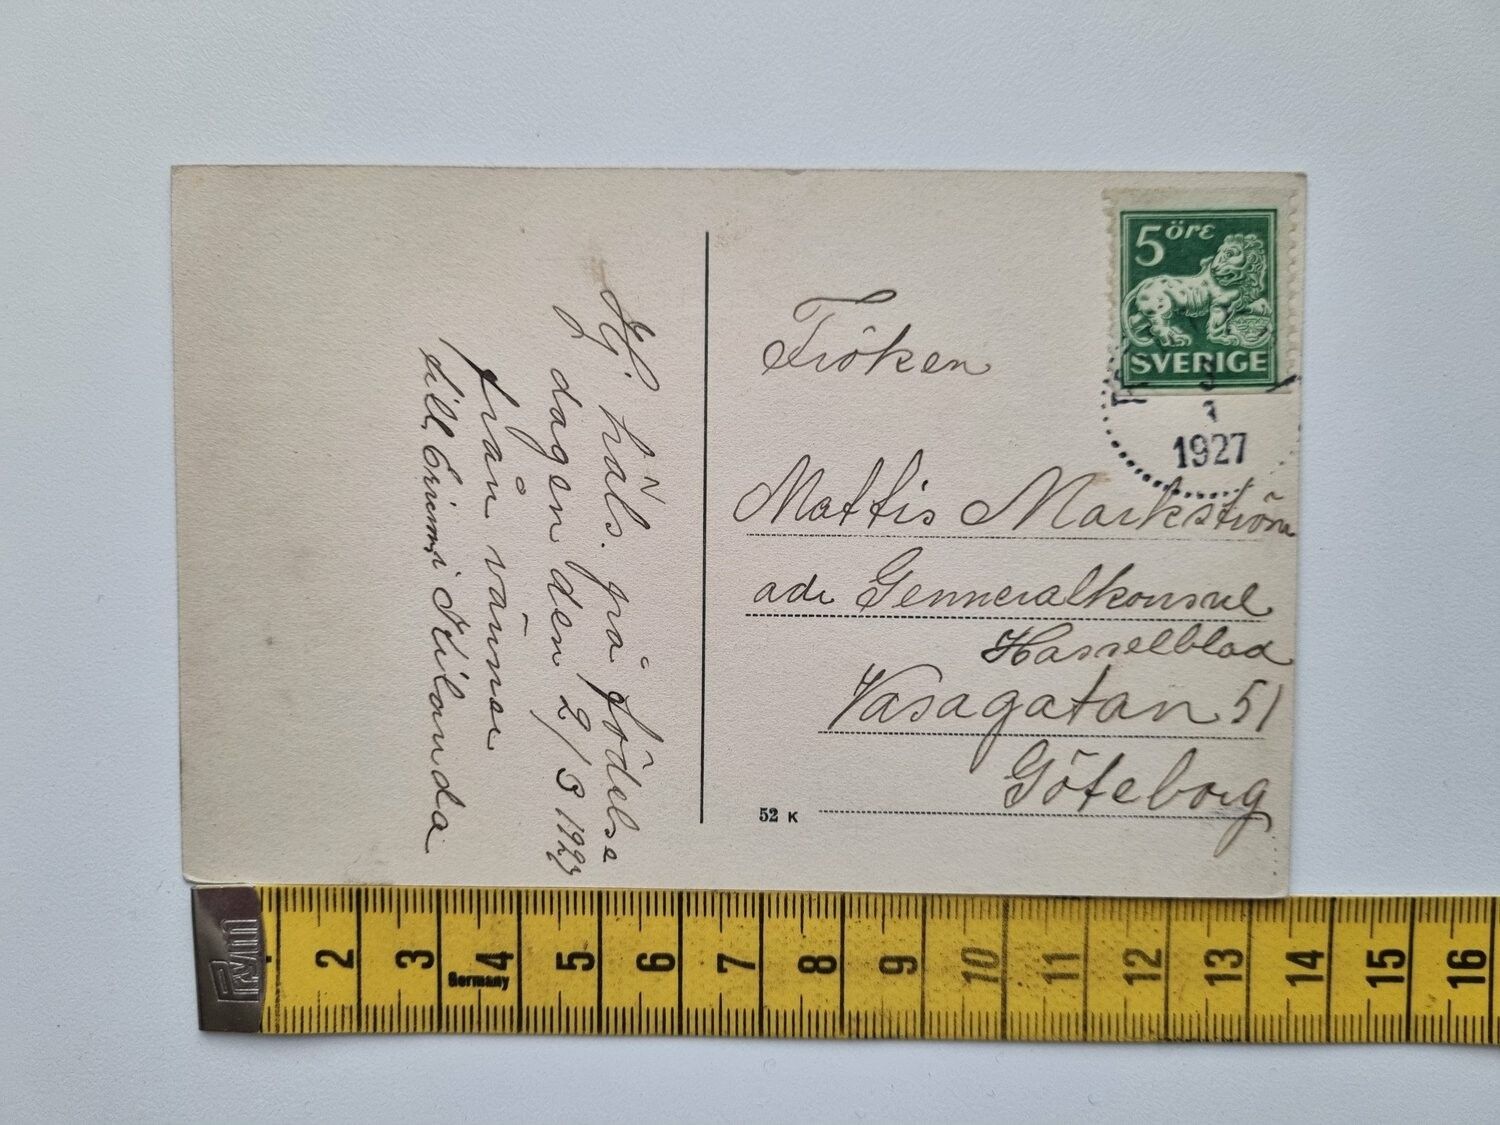 Hj. häls. på födelse
dagen den 2/3 1927
från vänner
i Hilanda
5 öre
SVERIGE
3
3
1927
Fröken
Mattis Markström
adr Genneralkonsul
Hasselblad
Vasagatan 51
Göteborg
52 K
Prym
2 3 4 5 6 7 8 9 10 11 12 13 14 15 16
Germany